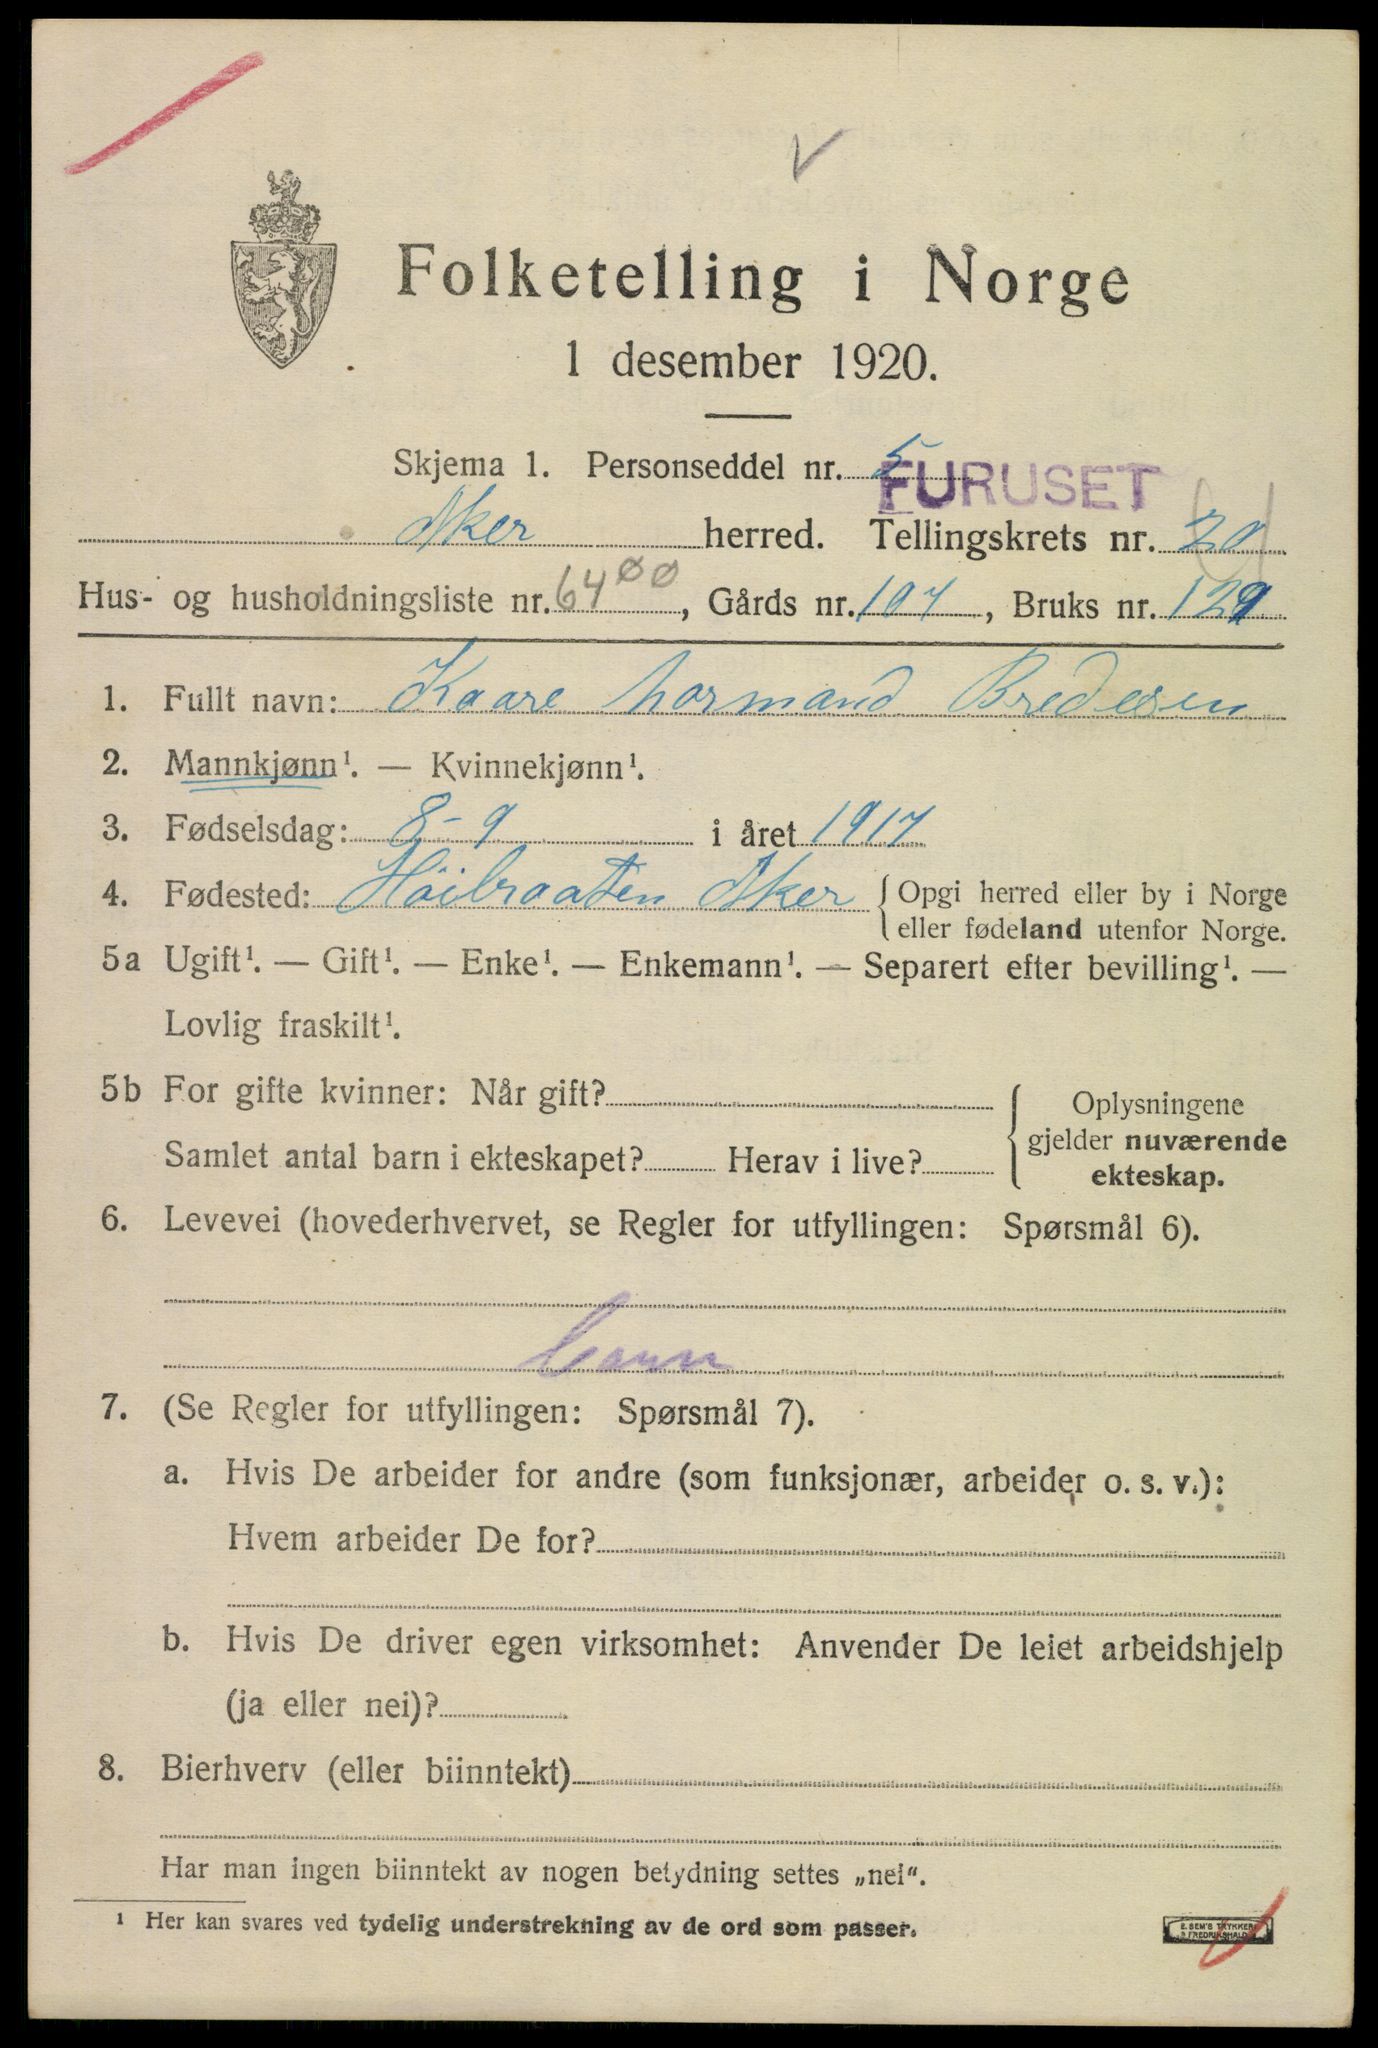 Folketelling i Norge
1 desember 1920.
Skjema 1. Personseddel nr. 5
FURUSET
Aker herred. Tellingskrets nr. 20
Hus- og husholdningsliste nr. 6400, Gårds nr. 107, Bruks nr. 129
1. Fullt navn: Kaare Normand Bredesen
2. Mannkjønn¹. — Kvinnekjønn¹.
3. Fødselsdag: 8-9 i året 1917
4. Fødested: Høibraaten Aker { Opgi herred eller by i Norge
eller fødeland utenfor Norge.
5a Ugift¹. — Gift¹. — Enke¹. — Enkemann¹. — Separert efter bevilling¹. —
Lovlig fraskilt¹.
5b For gifte kvinner: Når gift?
Samlet antal barn i ekteskapet? Herav i live?
{ Oplysningene
gjelder nuværende
ekteskap.
6. Levevei (hovederhvervet, se Regler for utfyllingen: Spørsmål 6).
7. (Se Regler for utfyllingen: Spørsmål 7).
a. Hvis De arbeider for andre (som funksjonær, arbeider o. s. v.):
Hvem arbeider De for?
b. Hvis De driver egen virksomhet: Anvender De leiet arbeidshjelp
(ja eller nei)?
8. Bierhverv (eller biinntekt)
Har man ingen biinntekt av nogen betydning settes „nei“.
¹ Her kan svares ved tydelig understrekning av de ord som passer.
E. SEM'S TRYKKERI
FREDRIKSHALD